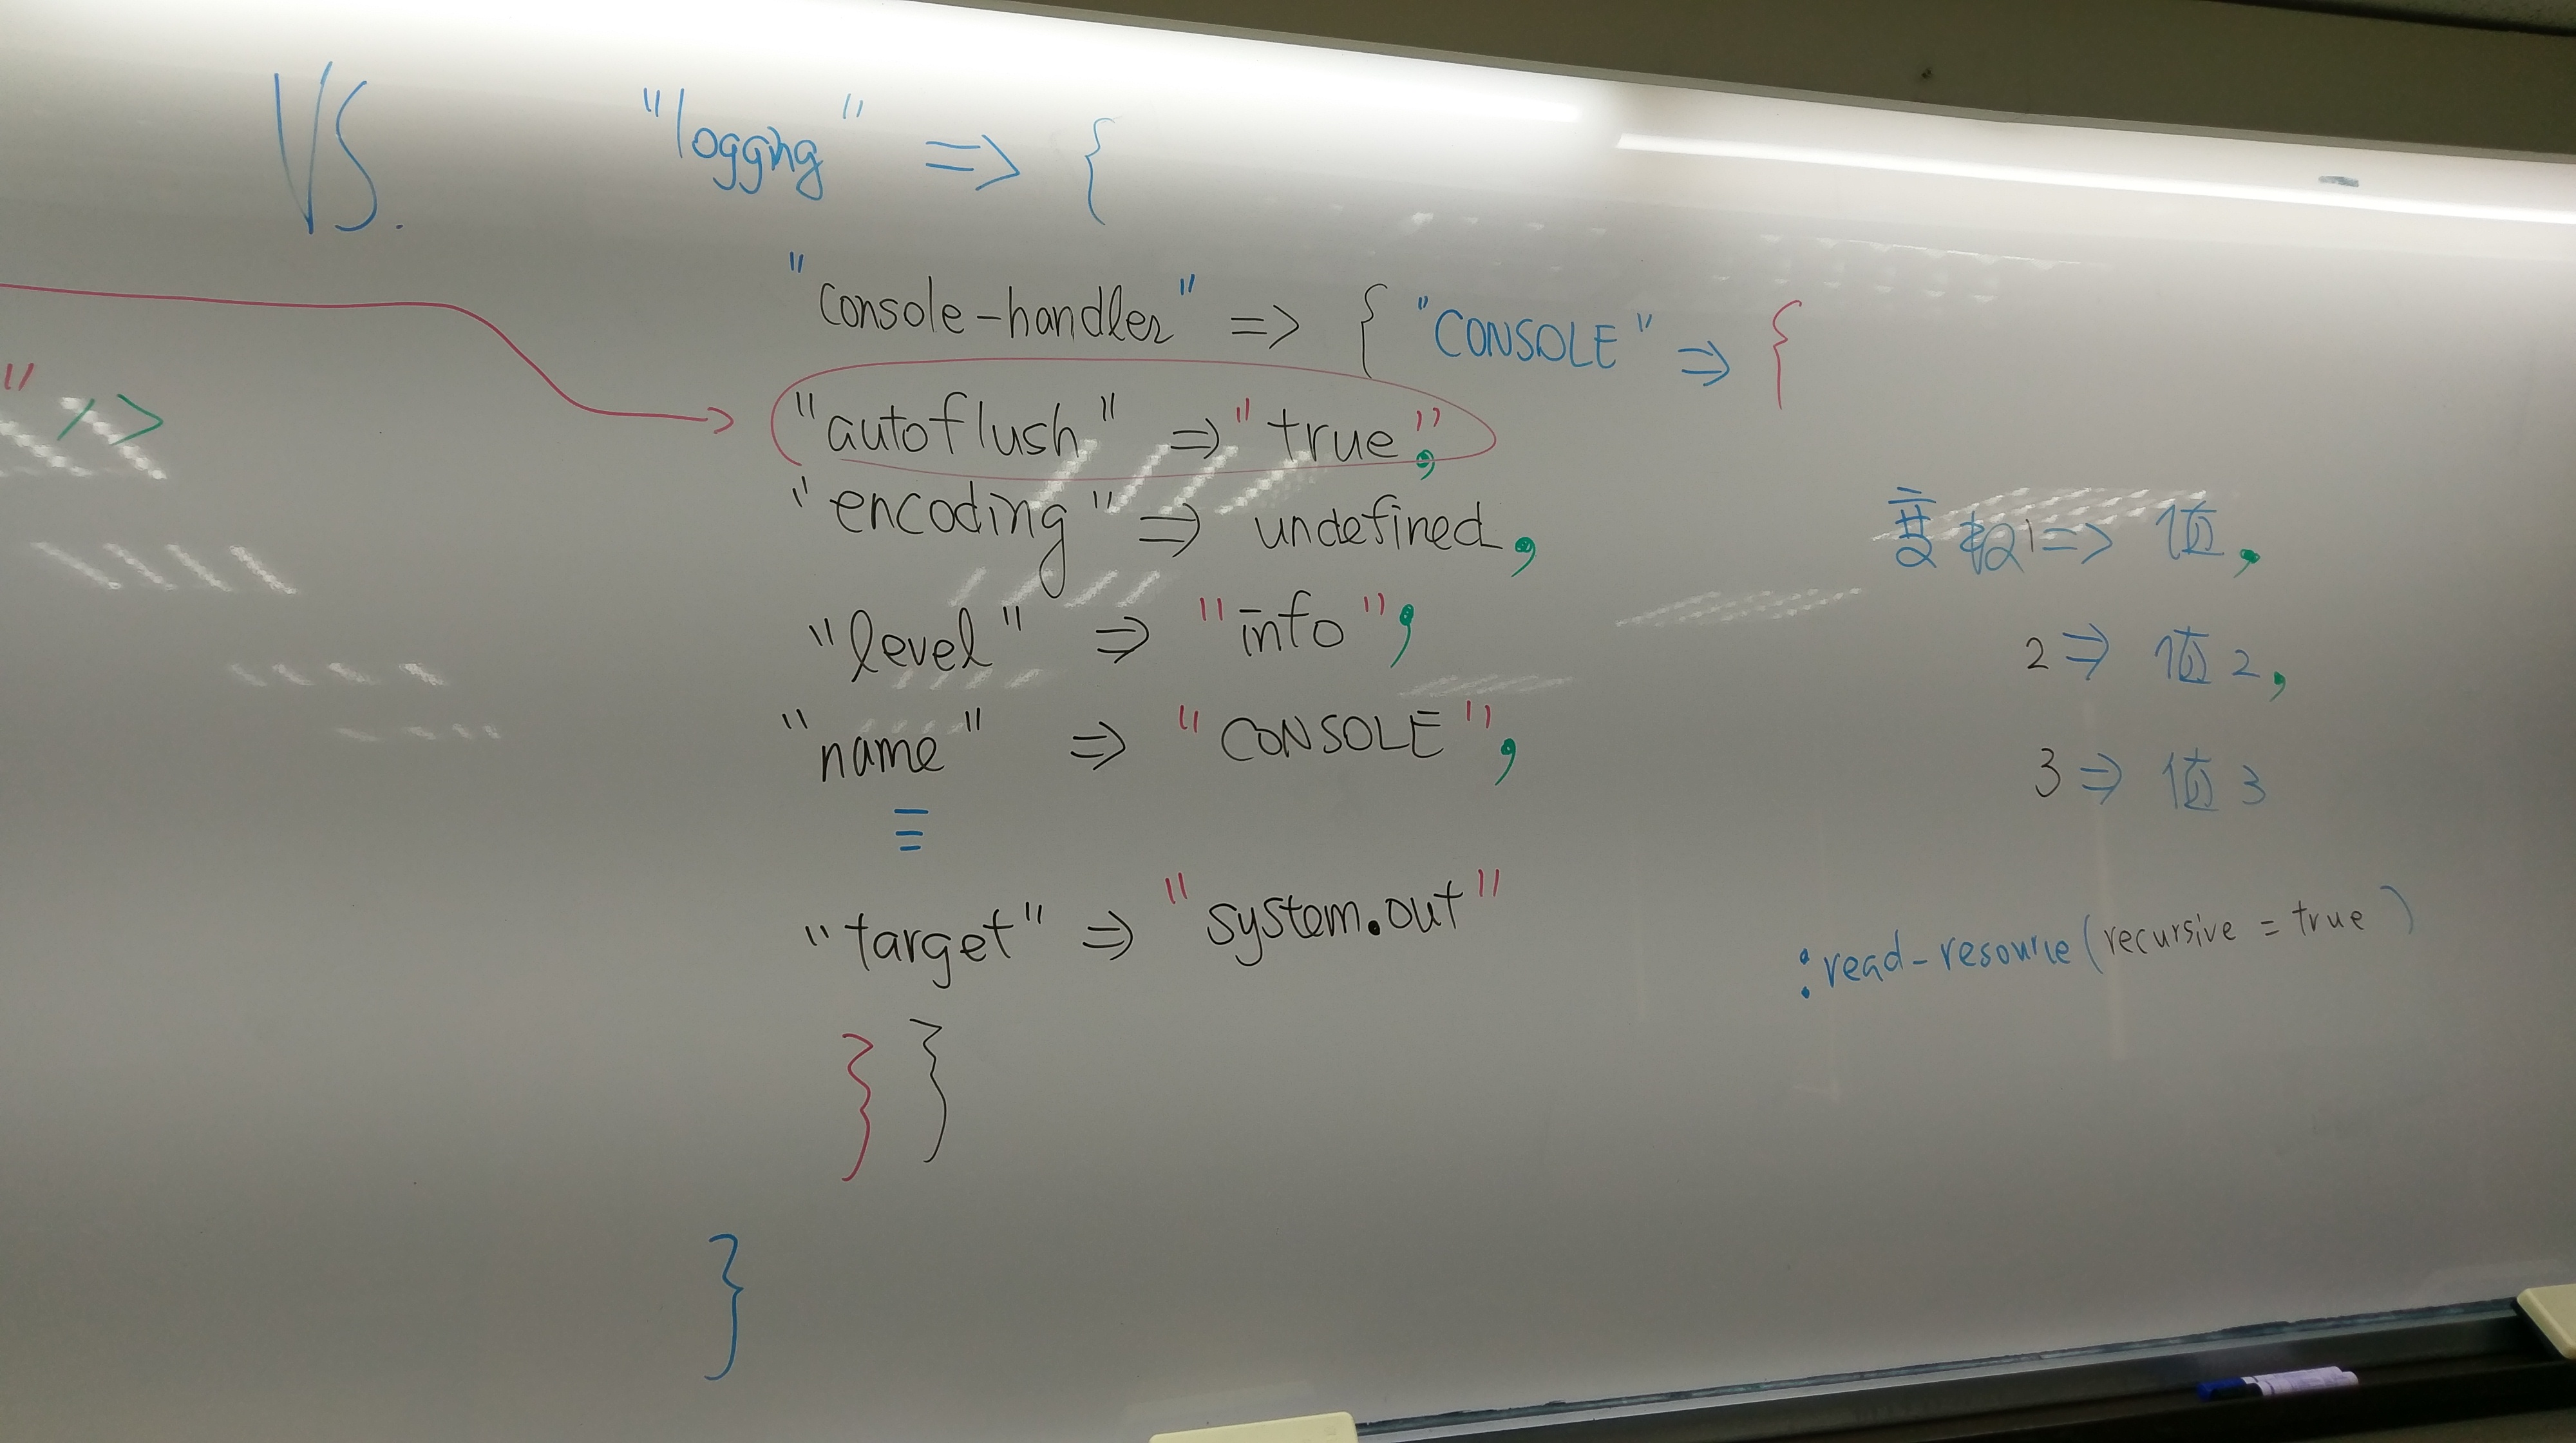 VS.
"logging" => {
"console-handler" => { "CONSOLE" => {
" />
"autoflush" => "true",
"encoding" => undefined,
"level" => "info",
"name" => "CONSOLE",
"target" => "system.out"
} }
}
1 => 值,
2 => 值2,
3 => 值3
:read-resource(recursive = true)